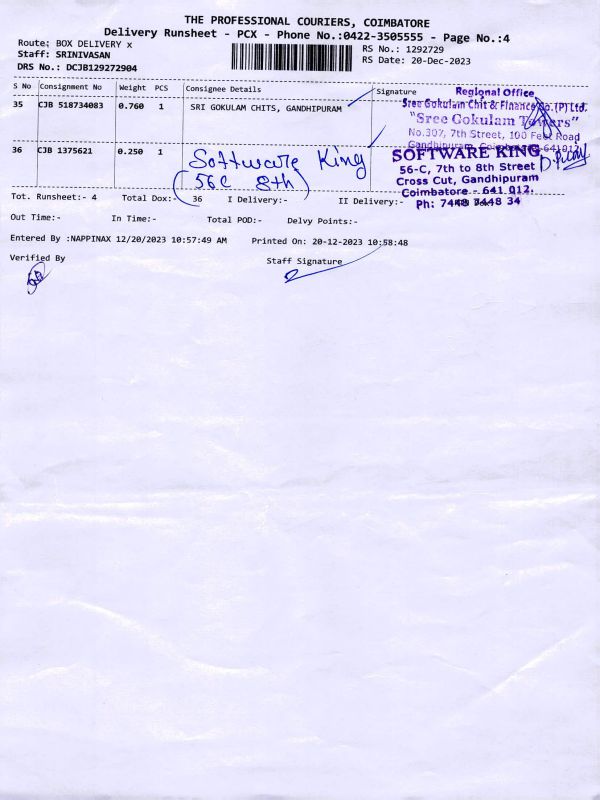 THE PROFESSIONAL COURIERS, COIMBATORE
Delivery Runsheet - PCX - Phone No.:0422-3505555 - Page No.:4
Route: BOX DELIVERY x
Staff: SRINIVASAN
DRS No.: DCJB129272904
RS No.: 1292729
RS Date: 20-Dec-2023
S No Consignment No Weight PCS Consignee Details Signature
35 CJB 518734083 0.760 1 SRI GOKULAM CHITS, GANDHIPURAM
Regional Office
Sree Gokulam Chit & Finance Co.(P)Ltd.
"Sree Gokulam Towers"
No.307, 7th Street, 100 Feet Road
Gandhipuram, Coimbatore-641012
36 CJB 1375621 0.250 1 Software King
(56C 8th)
SOFTWARE KING
56-C, 7th to 8th Street
Cross Cut, Gandhipuram
Coimbatore - 641 012.
Ph: 7448 7448 34
Tot. Runsheet:- 4 Total Dox:- 36 I Delivery:- II Delivery:-
Out Time:- In Time:- Total POD:- Delvy Points:-
Entered By :NAPPINAX 12/20/2023 10:57:49 AM Printed On: 20-12-2023 10:58:48
Verified By Staff Signature